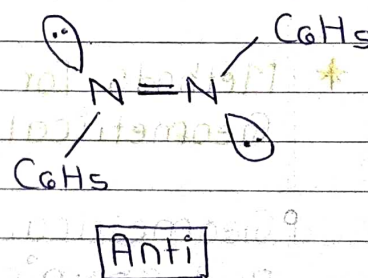 C6H5
N=N
C6H5
Anti